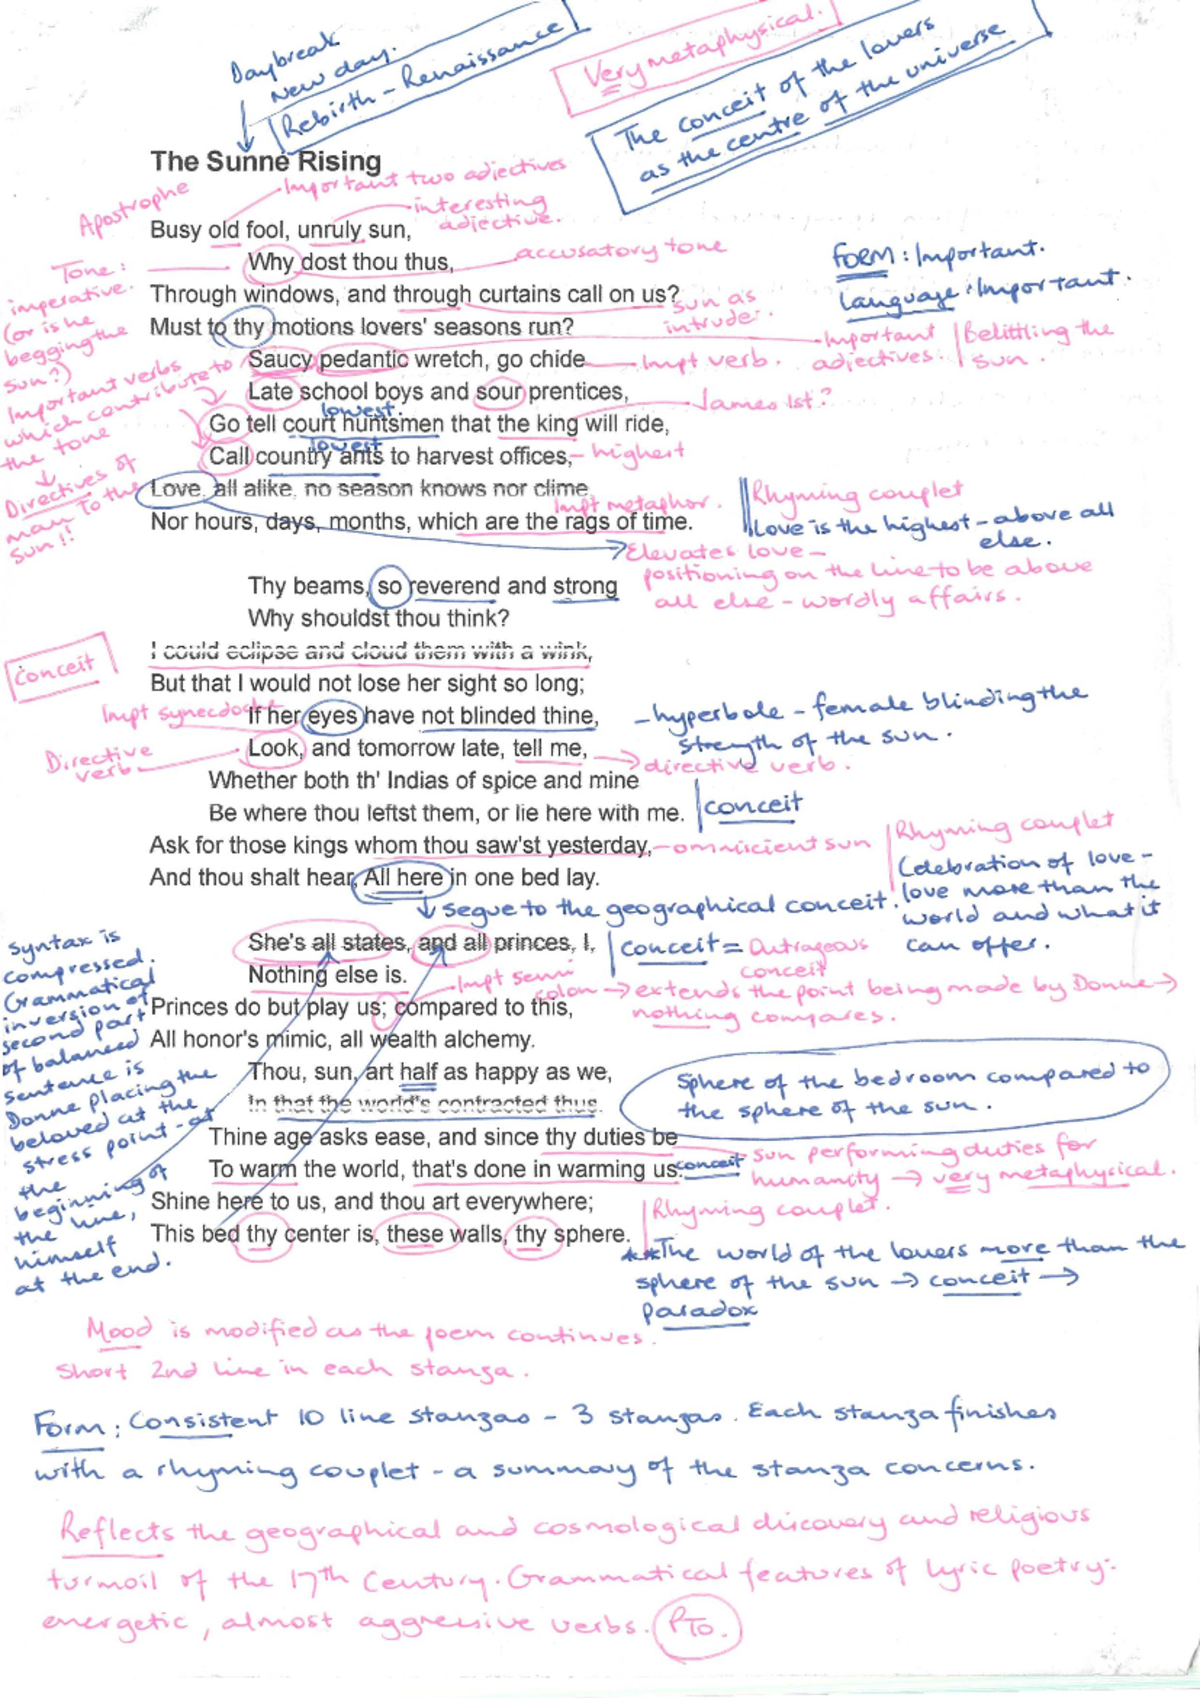 Daybreak
New day.
Rebirth - Renaissance
Very metaphysical.
The conceit of the lovers
as the centre of the universe
The Sunne Rising
Apostrophe
Important two adjectives
interesting
adjective.
Busy old fool, unruly sun,
Why dost thou thus,
accusatory tone
Through windows, and through curtains call on us?
sun as
intruder.
Must to thy motions lovers' seasons run?
Saucy pedantic wretch, go chide
Impt verb.
Important
adjectives.
Belittling the
sun.
Form: Important.
Language: Important.
Tone:
imperative.
(or is he
begging the
sun?)
Important verbs
which contribute to
the tone
Directives of
man to the
sun!!
Late school boys and sour prentices,
James 1st?
lowest.
Go tell court huntsmen that the king will ride,
lowest
Call country ants to harvest offices,
- highest
Love, all alike, no season knows nor clime,
Impt metaphor.
Nor hours, days, months, which are the rags of time.
Rhyming couplet
Love is the highest - above all
else.
Elevates love -
positioning on the line to be above
all else - wordly affairs.
Thy beams, so reverend and strong
Why shouldst thou think?
I could eclipse and cloud them with a wink,
Conceit
But that I would not lose her sight so long;
Impt synecdoche
If her eyes have not blinded thine,
- hyperbole - female blinding the
strength of the sun.
Directive
verb
Look, and tomorrow late, tell me,
directive verb.
Whether both th' Indias of spice and mine
Be where thou leftst them, or lie here with me.
conceit
Ask for those kings whom thou saw'st yesterday,
- omniscient sun
And thou shalt hear, All here in one bed lay.
Rhyming couplet
Celebration of love -
love more than the
world and what it
can offer.
segue to the geographical conceit.
She's all states, and all princes, I,
conceit = Outrageous
conceit
Nothing else is.
Impt semi
colon → extends the point being made by Donne →
nothing compares.
Princes do but play us; compared to this,
All honor's mimic, all wealth alchemy.
Thou, sun, art half as happy as we,
In that the world's contracted thus.
Sphere of the bedroom compared to
the sphere of the sun.
Thine age asks ease, and since thy duties be
To warm the world, that's done in warming us.
conceit
sun performing duties for
humanity → very metaphysical.
Shine here to us, and thou art everywhere;
This bed thy center is, these walls, thy sphere.
Rhyming couplet.
**The world of the lovers more than the
sphere of the sun → conceit →
paradox
Syntax is
compressed.
Grammatical
inversion of
second part
of balanced
sentence is
Donne placing the
beloved at the
stress point - at
the
beginning of
the line,
himself
at the end.
Mood is modified as the poem continues.
Short 2nd line in each stanza.
Form: Consistent 10 line stanzas - 3 stanzas. Each stanza finishes
with a rhyming couplet - a summary of the stanza concerns.
Reflects the geographical and cosmological discovery and religious
turmoil of the 17th Century. Grammatical features of lyric poetry:
energetic, almost aggressive verbs. PTO.